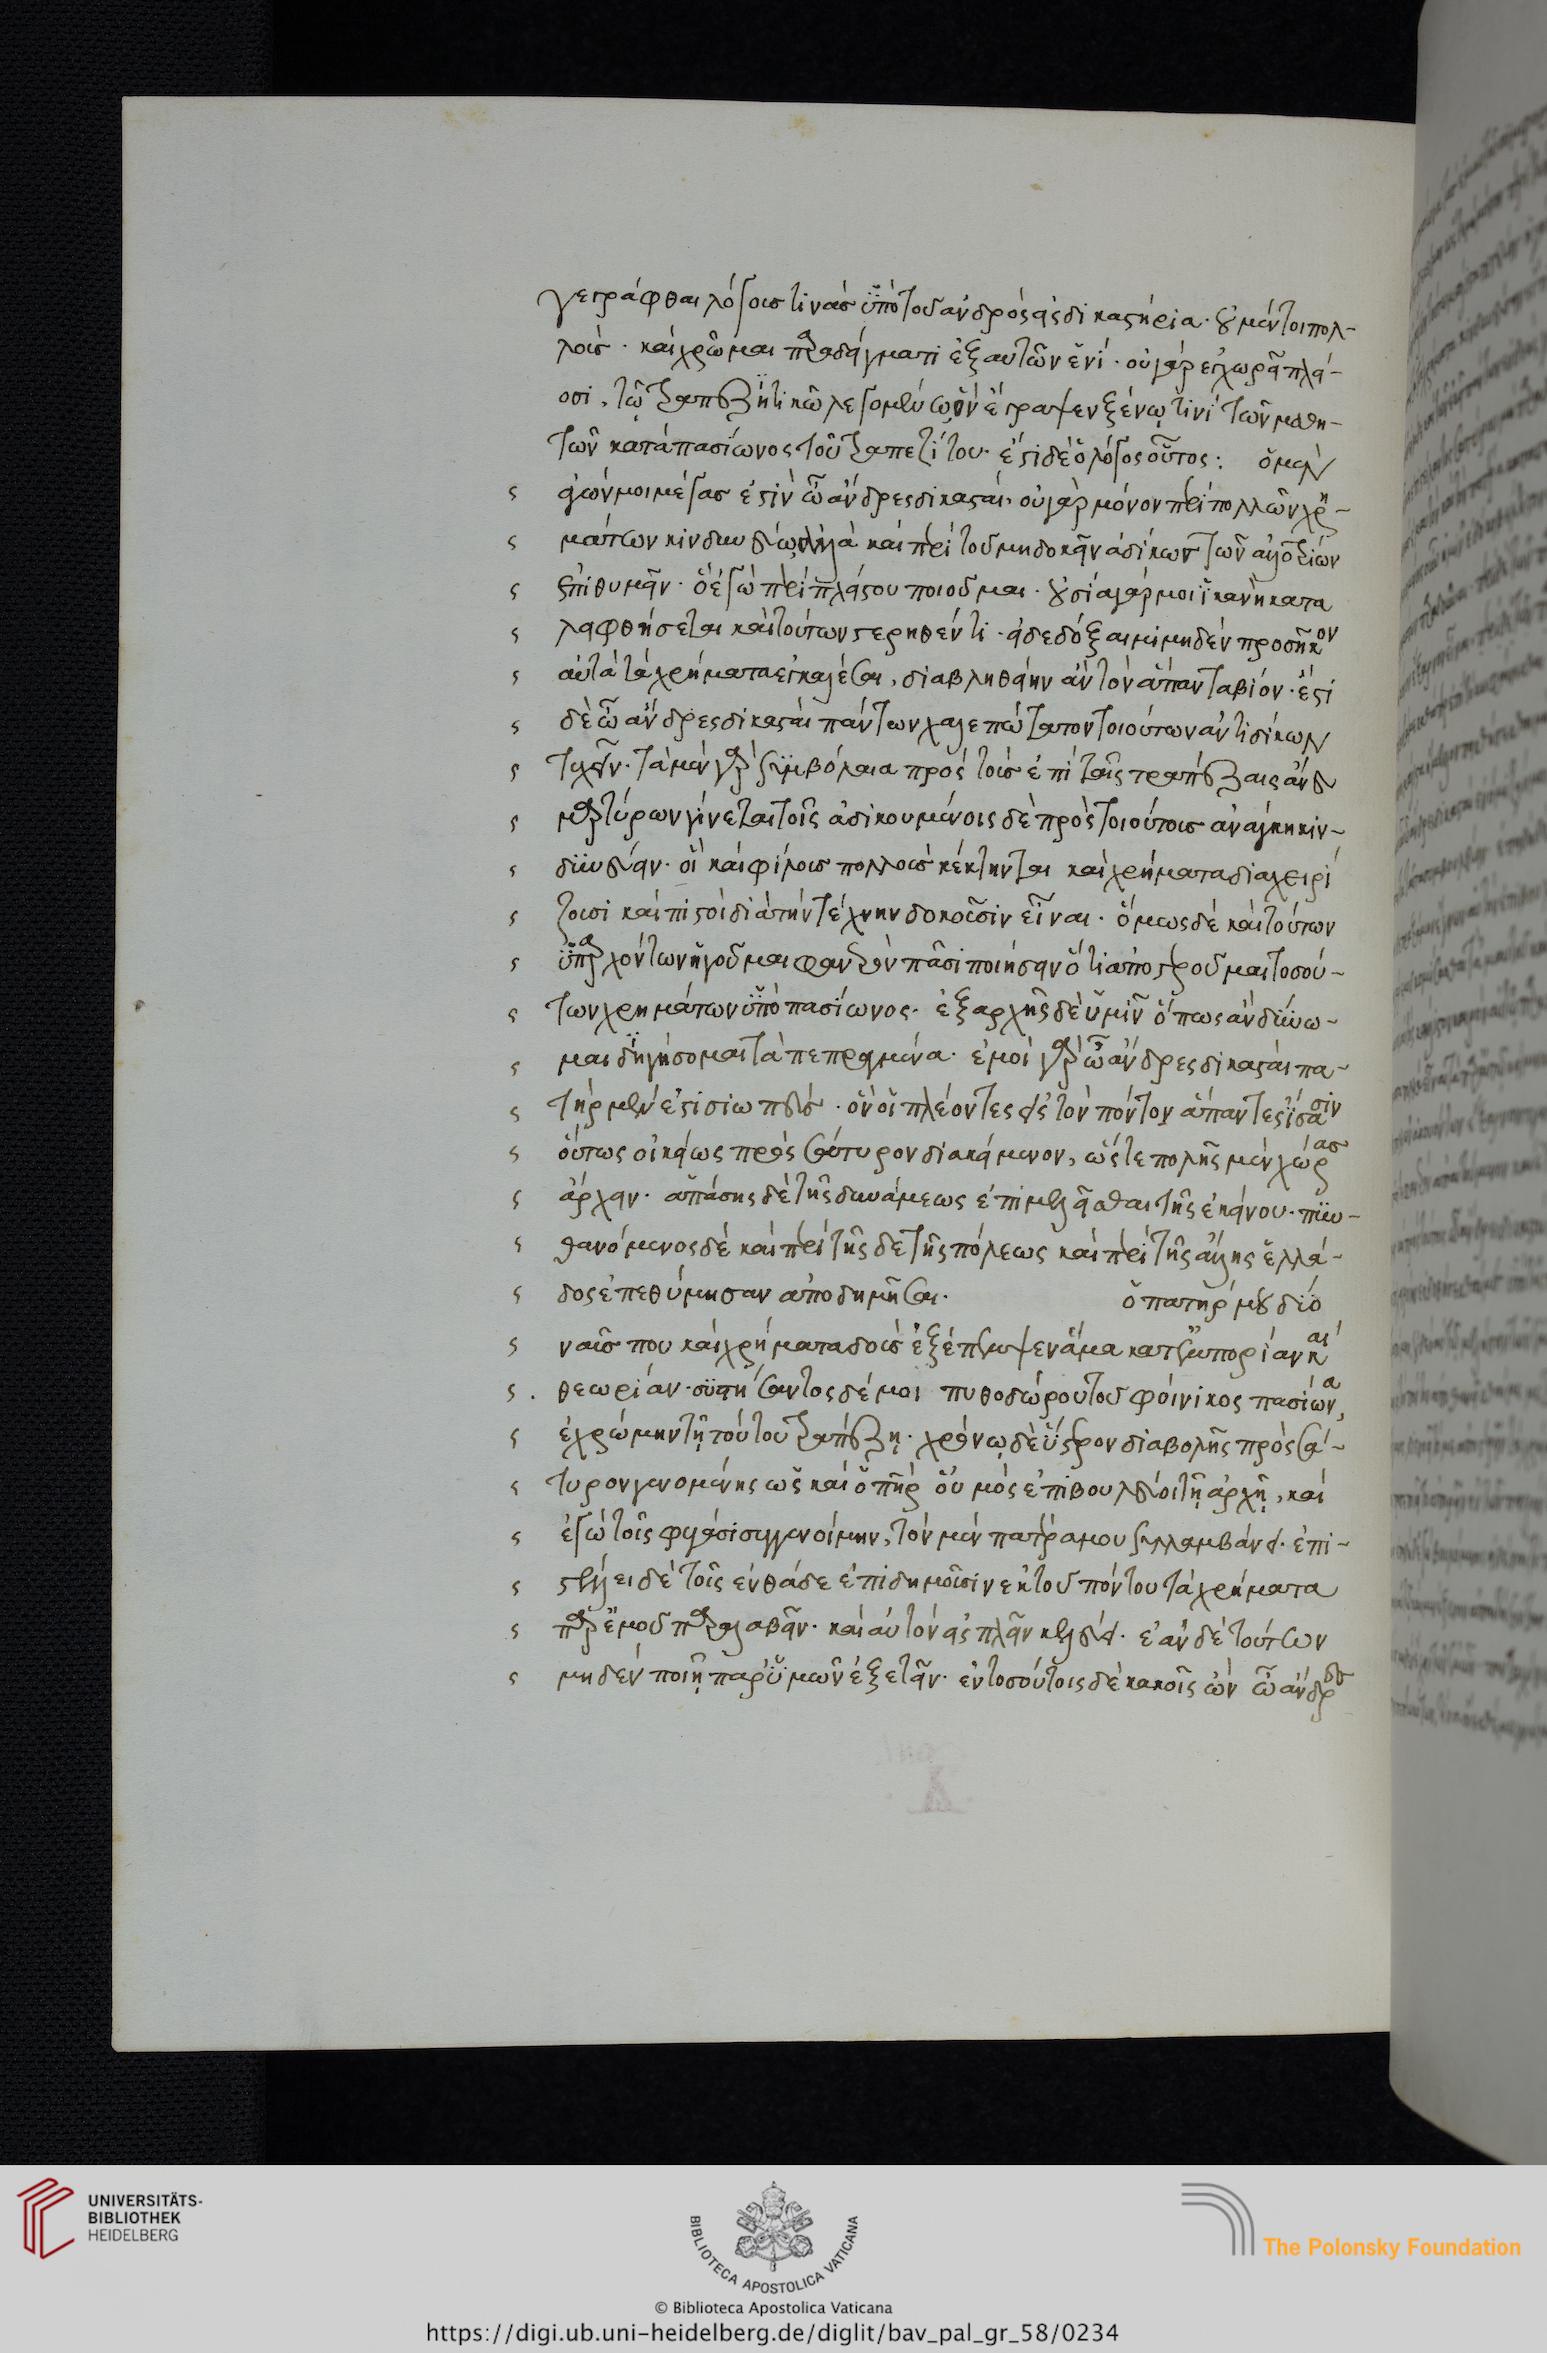 γεγράφθαι λόγους τινὰς ὑπὸ τοῦ ἀνδρὸς εἰς δικαστήρια. οὐ μέντοι πολ-
λοὺς. καὶ χρῶμαι παραδείγματι ἐξ αὐτῶν ἑνί. οὐ γὰρ ἐγχωρεῖ πλεί-
οσι. τῷ τραπεζιτικῷ λεγομένῳ ὃν ἔγραψεν ξένῳ τινί τῶν μαθη-
τῶν κατὰ πασίωνος τοῦ τραπεζίτου. ἔστι δὲ ὁ λόγος οὗτος: ὁ μὲν
ἀγών μοι μέγας ἐστὶν ὦ ἄνδρες δικασταί. οὐ γὰρ μόνον περὶ πολλῶν χρη-
μάτων κινδυνεύω, ἀλλὰ καὶ περὶ τοῦ μὴ δοκεῖν ἀδίκως τῶν ἀλλοτρίων
ἐπιθυμεῖν. ὃ ἐγὼ περὶ πλείστου ποιοῦμαι. οὐσία γάρ μοι ἱκανὴ κατα
λειφθήσεται καὶ τούτων στερηθέντι. εἰ δὲ δόξαιμι μηδὲν προσῆκον
αὐτὰ τὰ χρήματα ἐγκαλέσαι, διαβληθείην ἂν τὸν ἅπαντα βίον. ἔστι
δὲ ὦ ἄνδρες δικασταὶ πάντων χαλεπώτατον τοιούτων ἀντιδίκων
τυχεῖν. τὰ μὲν γὰρ συμβόλαια πρὸς τοὺς ἐπὶ ταῖς τραπέζαις ἄνευ
μαρτύρων γίνεται τοῖς ἀδικουμένοις δὲ πρὸς τοιούτους ἀνάγκη κιν-
δυνεύειν. οἳ καὶ φίλους πολλοὺς κέκτηνται καὶ χρήματα διαχειρί
ζουσι καὶ πιστοὶ διὰ τὴν τέχνην δοκοῦσιν εἶναι. ὅμως δὲ καὶ τούτων
ὑπαρχόντων ἡγοῦμαι φανερὸν πᾶσι ποιήσειν ὅτι ἀποστεροῦμαι τοσού-
των χρημάτων ὑπὸ πασίωνος. ἐξ ἀρχῆς δὲ ὑμῖν ὅπως ἂν δύνω-
μαι διηγήσομαι τὰ πεπραγμένα. ἐμοὶ γὰρ ὦ ἄνδρες δικασταὶ πα-
τὴρ μέν ἐστι σιωπεύς. ὃν οἱ πλέοντες εἰς τὸν πόντον ἅπαντες ἴσασιν
οὕτως οἰκείως πρὸς σάτυρον διακείμενον, ὥστε πολῆς μὲν χώρας
ἄρχειν. ἁπάσης δὲ τῆς δυνάμεως ἐπιμελεῖσθαι τῆς ἐκείνου. πυν-
θανόμενος δὲ καὶ περὶ τῆσδε τῆς πόλεως καὶ περὶ τῆς ἄλλης ἑλλά-
δος ἐπεθύμησαν ἀποδημῆσαι. ὁ πατήρ μου δύο
ναῦς που καὶ χρήματα δοὺς ἐξέπεμψεν ἅμα κατ' ἐμπορίαν καὶ
θεωρίαν. συστήσαντος δέ μοι πυθοδώρου τοῦ φοίνικος πασίωνα,
ἐχρώμην τῇ τούτου τραπέζῃ. χρόνῳ δὲ ὕστερον διαβολῆς πρὸς σά-
τυρον γενομένης ὡς καὶ ὁ πατὴρ οὑμὸς ἐπιβουλεύοι τῇ ἀρχῇ, καὶ
ἐγὼ τοῖς φυγάσι συγγενοίμην, τὸν μὲν πατέρα μου συλλαμβάνει. ἐπι-
στέλλει δὲ τοῖς ἐνθάδε ἐπιδημοῦσιν ἐκ τοῦ πόντου τὰ χρήματα
παρ' ἐμοῦ παραλαβεῖν. καὶ αὐτὸν εἰσπλεῖν κελεύει. ἐὰν δὲ τούτων
μηδὲν ποιῇ παρ' ὑμῶν ἐξετεῖν. ἐν τοσούτοις δὲ κακοῖς ὢν ὦ ἄνδρες
UNIVERSITÄTS-
BIBLIOTHEK
HEIDELBERG
BIBLIOTHECA APOSTOLICA VATICANA
© Biblioteca Apostolica Vaticana
The Polonsky Foundation
https://digi.ub.uni-heidelberg.de/diglit/bav_pal_gr_58/0234